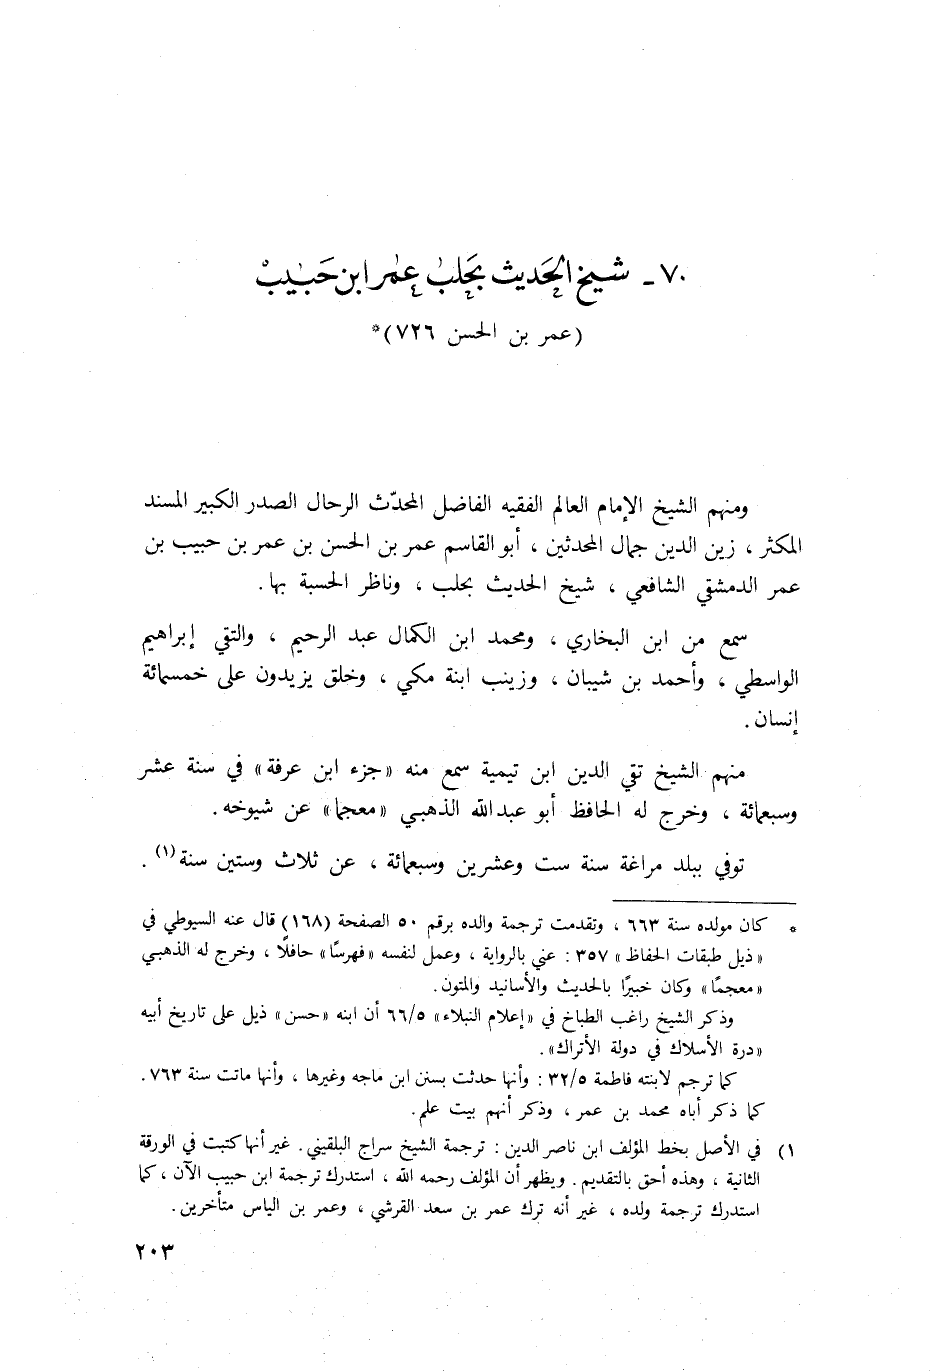 ٧٠ - شيخ الحديث بحلب عمر ابن حبيب
(عمر بن الحسن ٧٢٦)*
ومنهم الشيخ الإمام العالم الفقيه الفاضل المحدّث الرحال الصدر الكبير المسند
المكثر ، زين الدين جمال المحدثين ، أبو القاسم عمر بن الحسن بن عمر بن حبيب بن
عمر الدمشقي الشافعي ، شيخ الحديث بحلب ، وناظر الحسبة بها .
سمع من ابن البخاري ، ومحمد ابن الكمال عبد الرحيم ، والتقي إبراهيم
الواسطي ، وأحمد بن شيبان ، وزينب ابنة مكي ، وخلق يزيدون على خمسمائة
إنسان .
منهم الشيخ تقي الدين ابن تيمية سمع منه «جزء ابن عرفة» في سنة عشر
وسبعمائة ، وخرج له الحافظ أبو عبدالله الذهبي «معجما» عن شيوخه .
توفي ببلد مراغة سنة ست وعشرين وسبعمائة ، عن ثلاث وستين سنة (١) .
* كان مولده سنة ٦٦٣ ، وتقدمت ترجمة والده برقم ٥٠ الصفحة (١٦٨) قال عنه السيوطي في
«ذيل طبقات الحفاظ» ٣٥٧ : عني بالرواية ، وعمل لنفسه «فهرسًا» حافلًا ، وخرج له الذهبي
«معجمًا» وكان خبيرًا بالحديث والأسانيد والمتون .
وذكر الشيخ راغب الطباخ في «إعلام النبلاء» ٦٦/٥ أن ابنه «حسن» ذيل على تاريخ أبيه
«درة الأسلاك في دولة الأتراك» .
كما ترجم لابنته فاطمة ٣٢/٥ : وأنها حدثت بسنن ابن ماجه وغيرها ، وأنها ماتت سنة ٧٦٣ .
كما ذكر أباه محمد بن عمر ، وذكر أنهم بيت علم .
١) في الأصل بخط المؤلف ابن ناصر الدين : ترجمة الشيخ سراج البلقيني . غير أنها كتبت في الورقة
الثانية ، وهذه أحق بالتقديم . ويظهر أن المؤلف رحمه الله ، استدرك ترجمة ابن حبيب الآن ، كما
استدرك ترجمة ولده ، غير أنه ترك عمر بن سعد القرشي ، وعمر بن الياس متأخرين .
٢٠٣